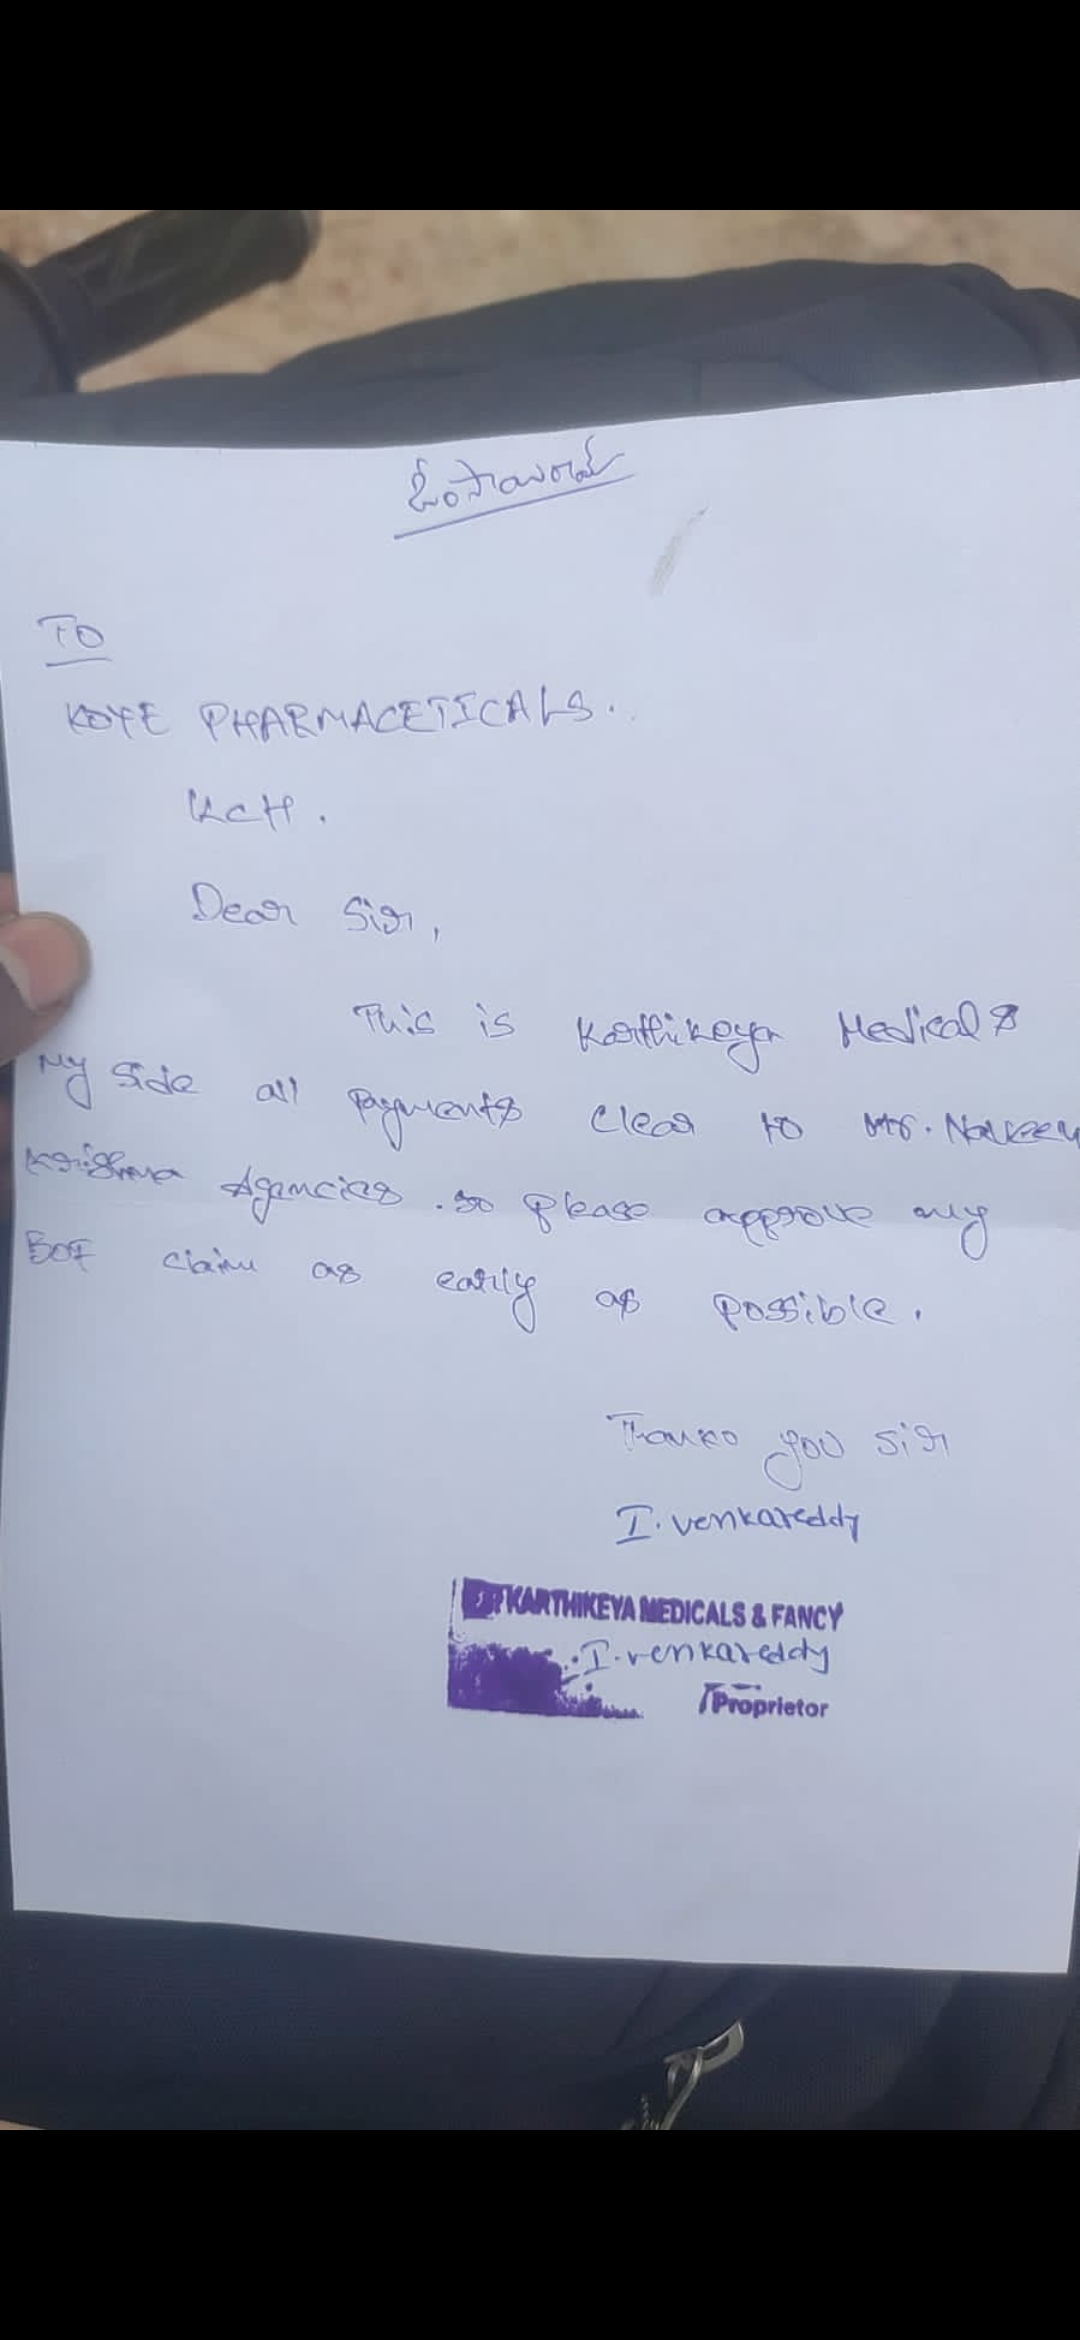 ఓం సాయిరామ్
TO
KOYE PHARMACETICALS.
KCH.
Dear Sir,
This is Karthikeya Medicals
My side all payments clear to Mr. Naveen
Krishna Agencies. So please approve my
claim as early as possible.
Thank you sir
I. venkareddy
KARTHIKEYA MEDICALS & FANCY
I. venkareddy
Proprietor